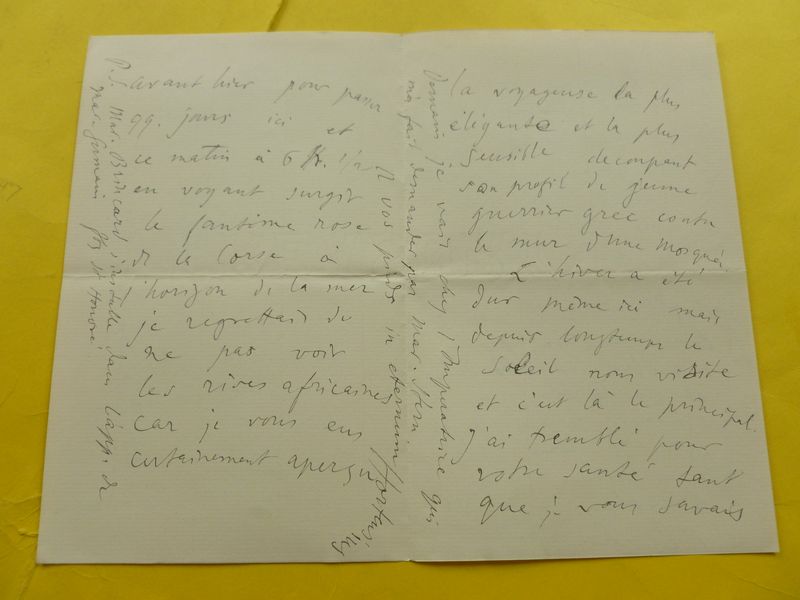 avant hier pour passer
qq. jours ici et
ce matin à 6h. 1/2
en voyant surgir
le fantôme rose
de la Corse à
l'horizon de la mer
je regrettais de
ne pas voir
les rives africaines
car je vous eus
certainement aperçu
la voyageuse la plus
élégante et la plus
sensible découpant
son profil de jeune
guerrier grec contre
le mur d'une mosquée.
L'hiver a été
dur même ici mais
depuis longtemps le
soleil nous visite
et c'est là le principal.
j'ai tremblé pour
votre santé tant
que je vous savais
Demain je vais chez l'Impératrice qui
m'a fait demander par Mad. Stern
A vos pieds in eternum
P.S. Mad. Brincard s'installe dans l'app. de
Mad. Germain fbg St Honoré.